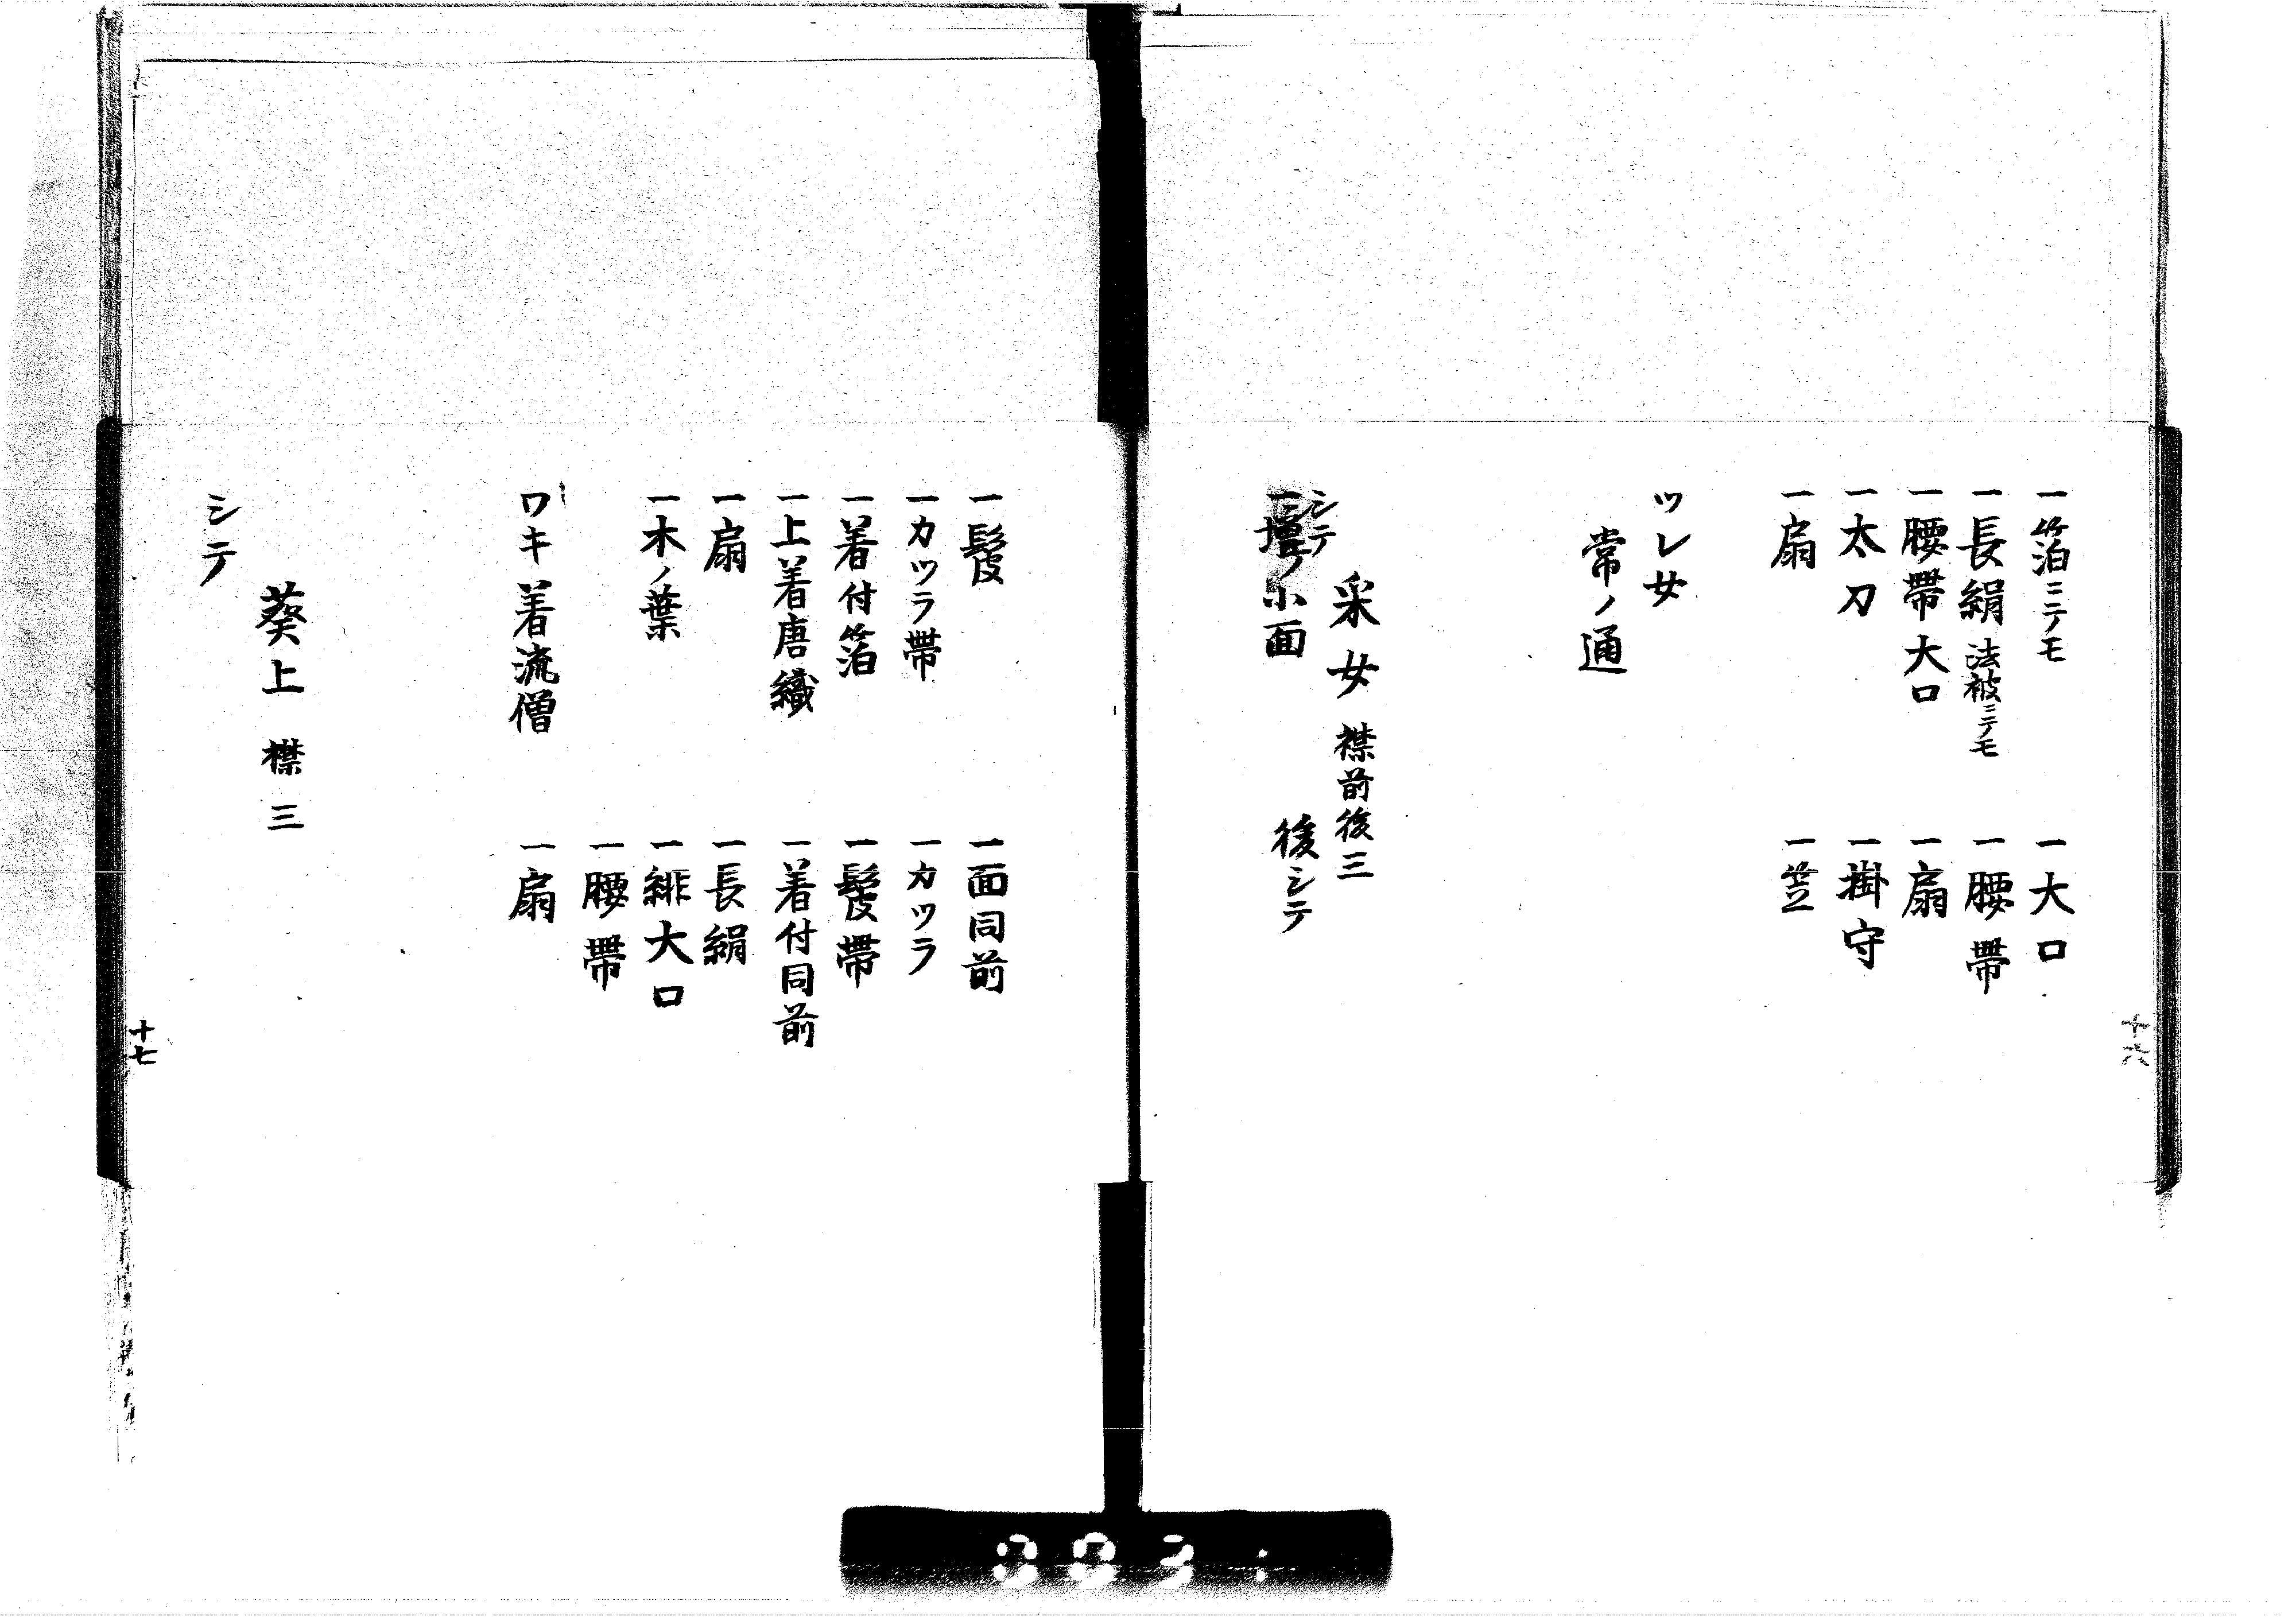 一箔ニテモ
一長絹法被ニテモ
一腰帯大口
一太刀
一扇
一大口
一腰帯
一扇
一掛守
一笠
ツレ女
常ノ通
采女 襟前後三
シテ
小面
後シテ
十六
一髪
一カツラ帯
一着付箔
一上着唐織
一扇
一木ノ葉
ワキ着流僧
一面同前
一カツラ
一髪帯
一着付同前
一長絹
一緋大口
一腰帯
一扇
葵上 襟三
シテ
十七